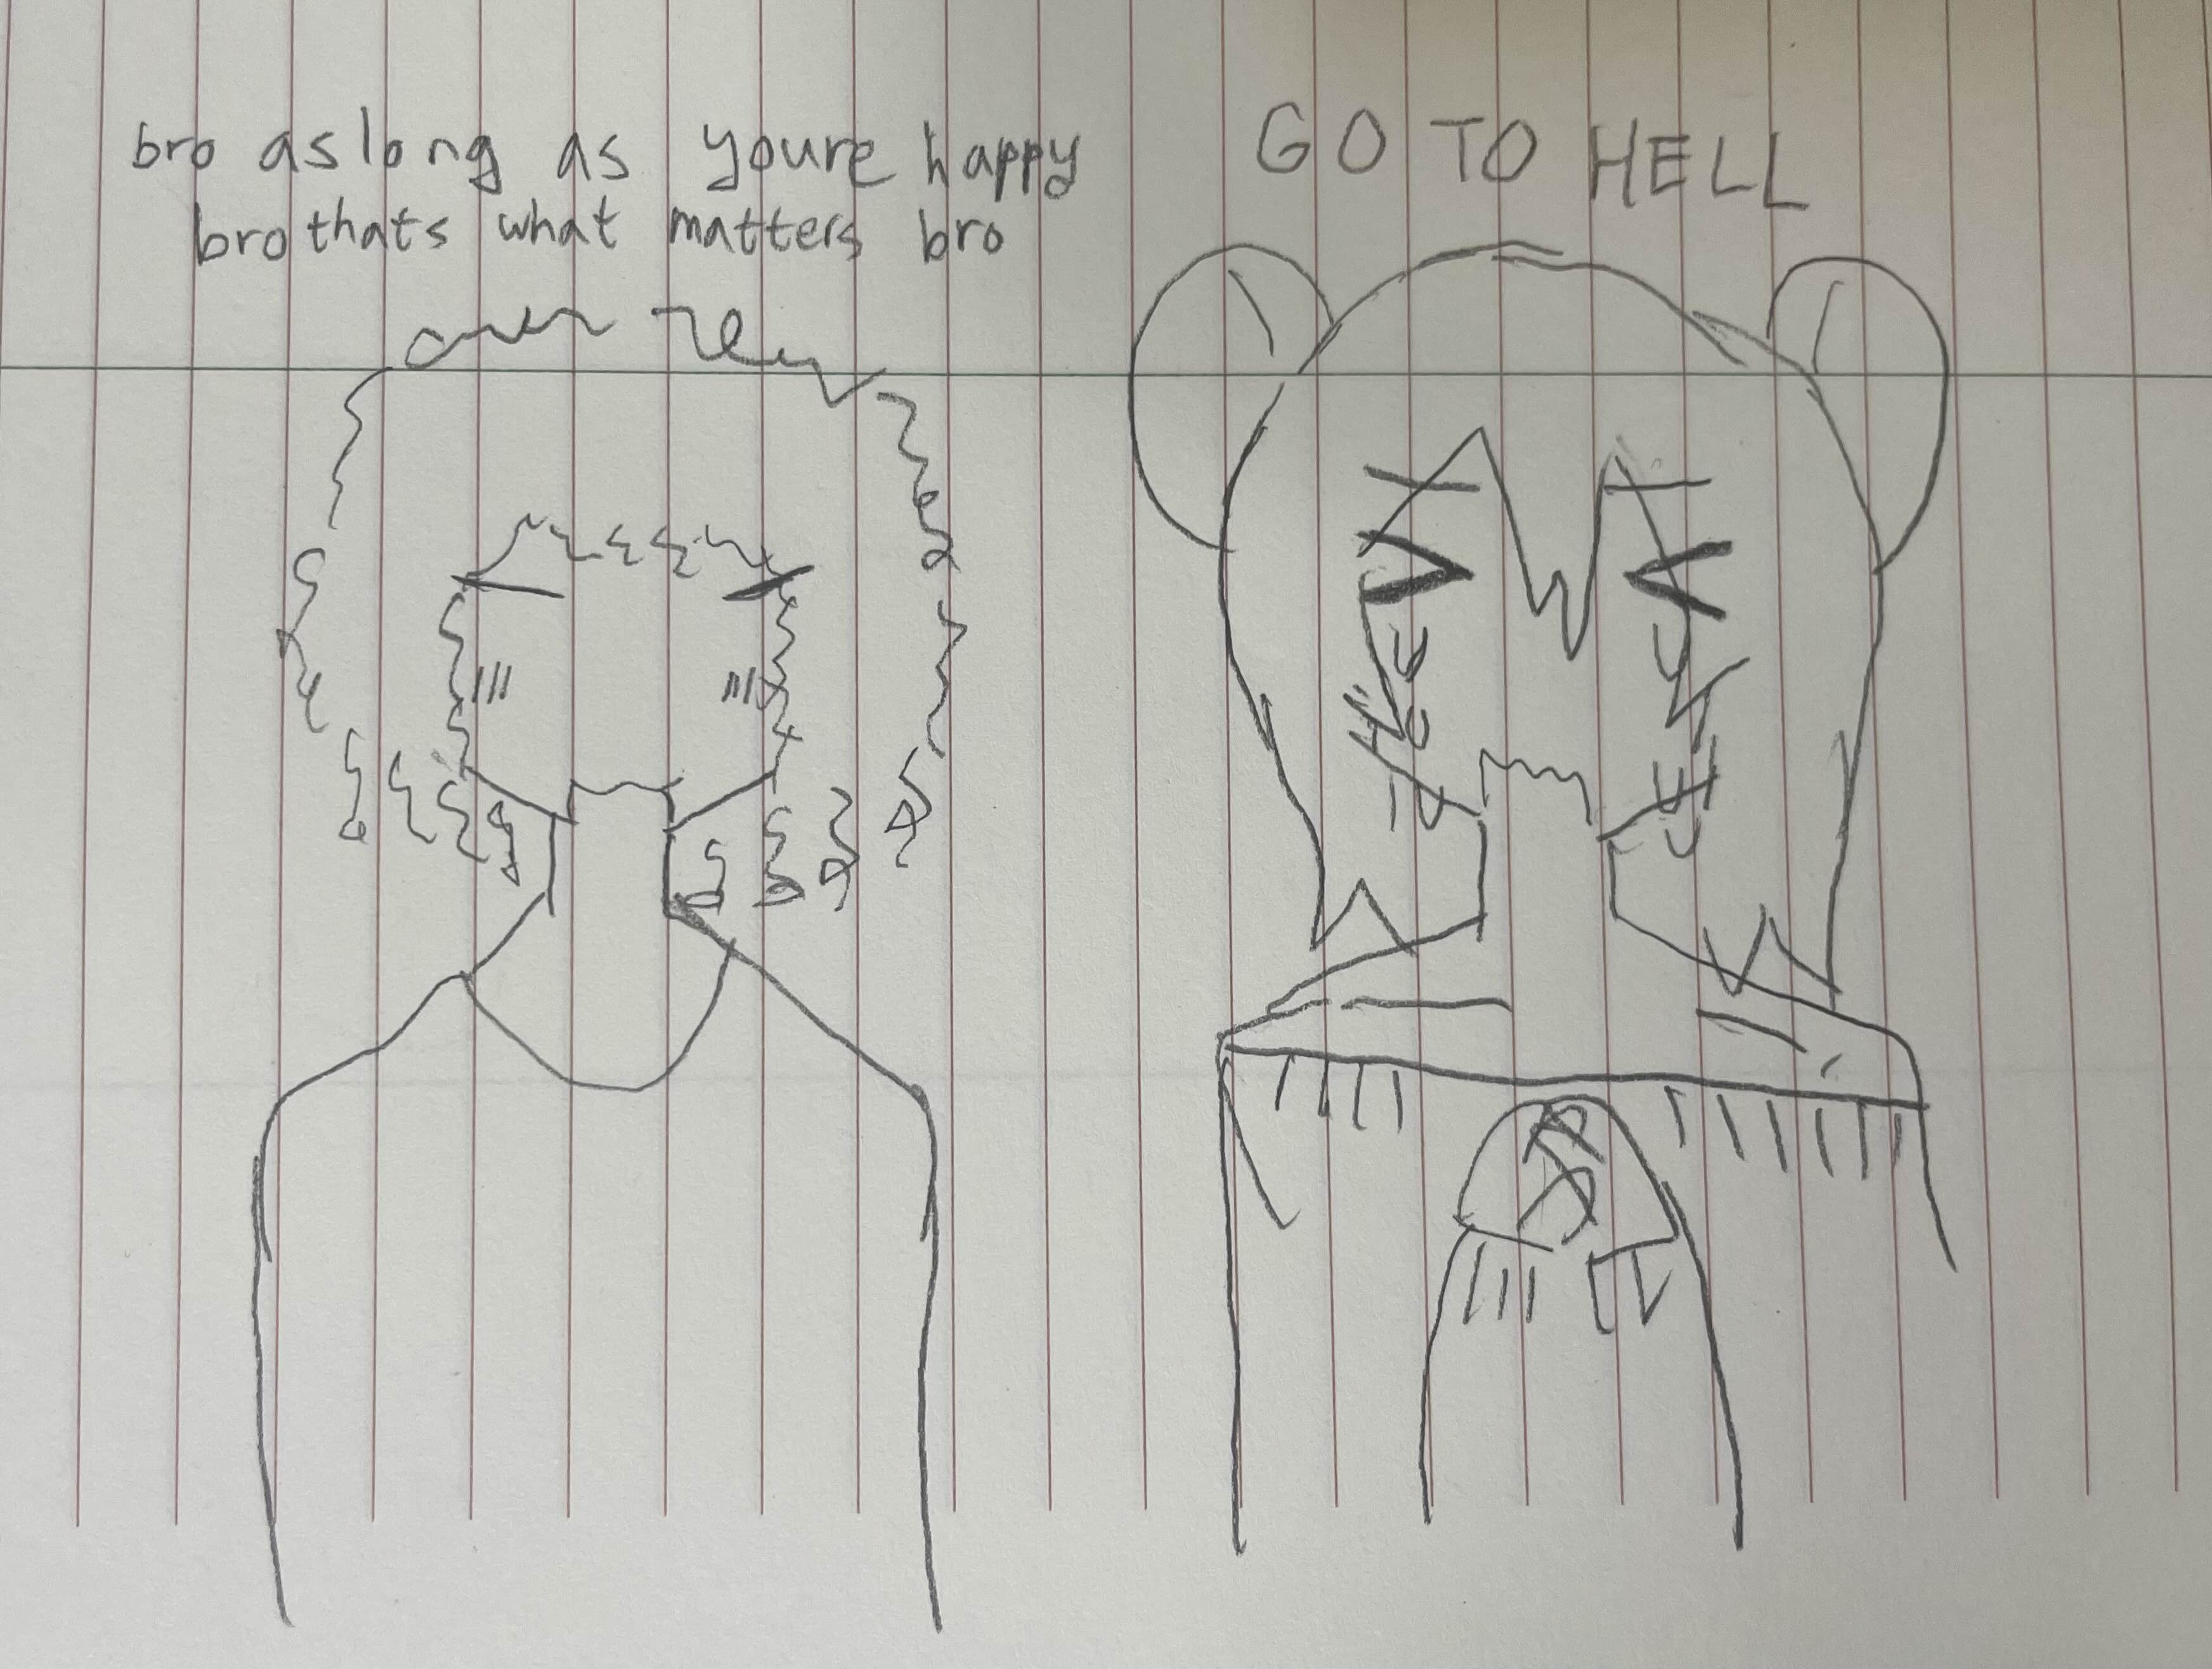 bro as long as youre happy
bro thats what matters bro
GO TO HELL